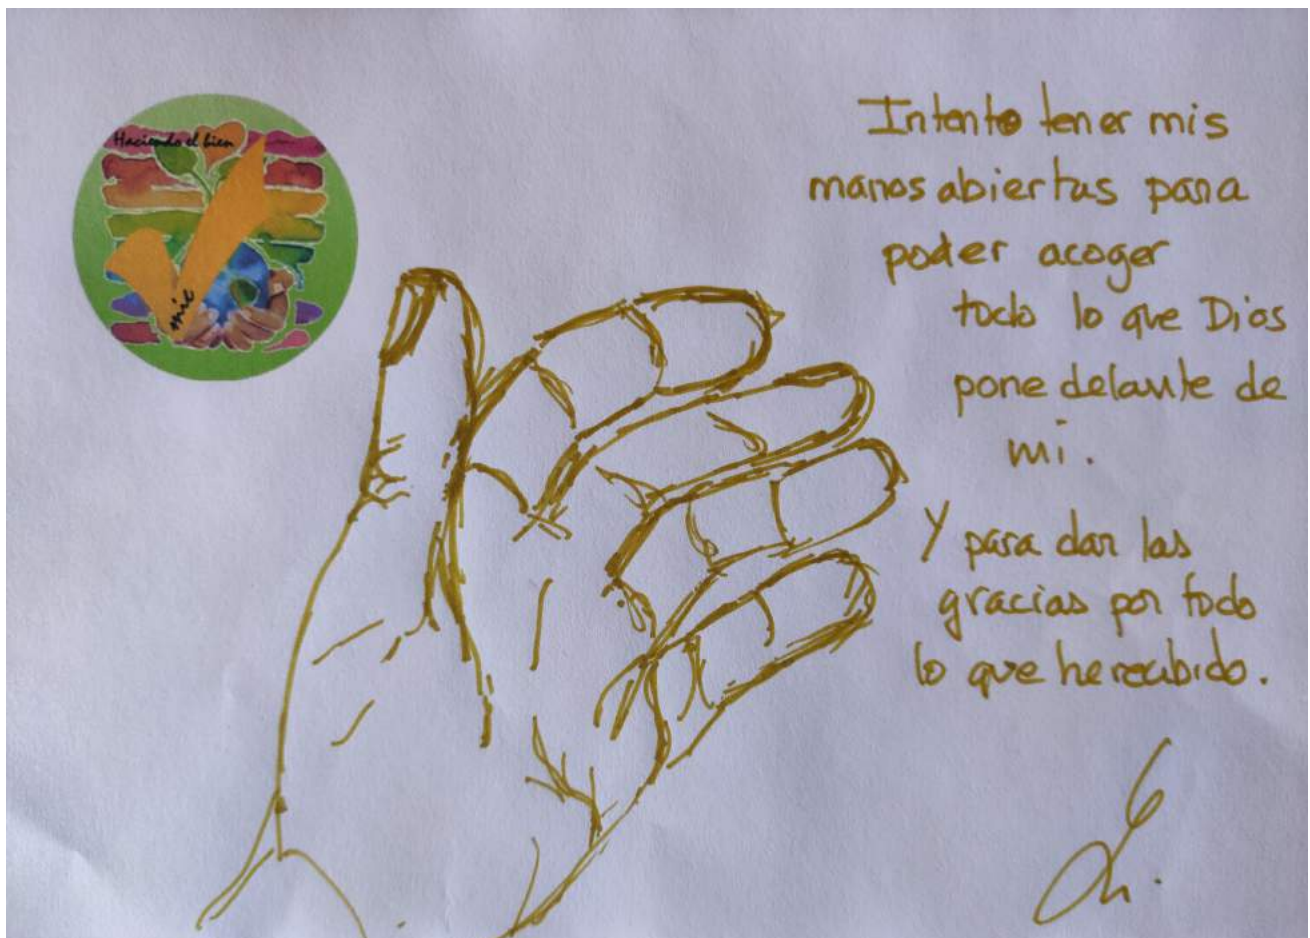 Haciendo el bien
mic
Intento tener mis
manos abiertas para
poder acoger
todo lo que Dios
pone delante de
mi.
Y para dar las
gracias por todo
lo que he recibido.